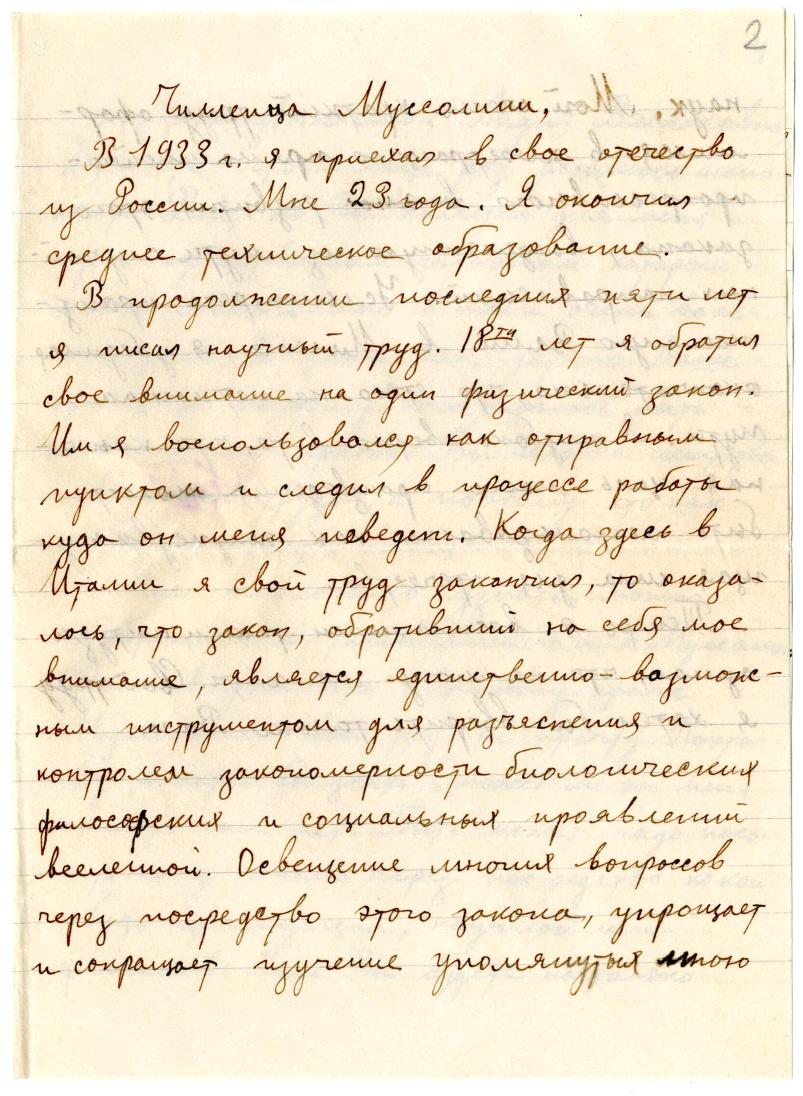 2
Чилленца Муссолини,
В 1933 г. я приехал в свое отечество
из России. Мне 23 года. Я окончил
среднее техническое образование.
В продолжении последних пяти лет
я писал научный труд. 18ти лет я обратил
свое внимание на один физический закон.
Им я воспользовался как отправным
пунктом и следил в процессе работы
куда он меня поведет. Когда здесь в
Италии я свой труд закончил, то оказа-
лось, что закон, обративший на себя мое
внимание, является единственно-возмож-
ным инструментом для разъяснения и
контролем закономерности биологических
философских и социальных проявлений
вселенной. Освещение многих вопроссов
через посредство этого закона, упрощает
и сокращает изучение упомянутых мною